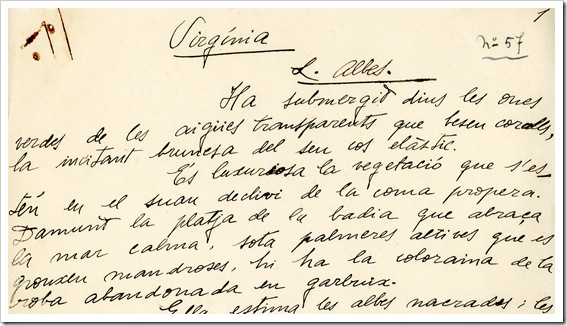 1
Virgínia
nº 57
L. Albes.
Ha submergit dins les ones
verdes de les aigües transparents que besen coralls,
la incitant brunesa del seu cos elàstic.
És luxuriosa la vegetació que s'es
tén en el suau declivi de la coma propera.
Damunt la platja de la badia que abraça
la mar calma, sota palmeres altives que es
gronxen mandroses, hi ha la coloraina de la
roba abandonada en garbuix.
Ella estima les albes nacrades i les